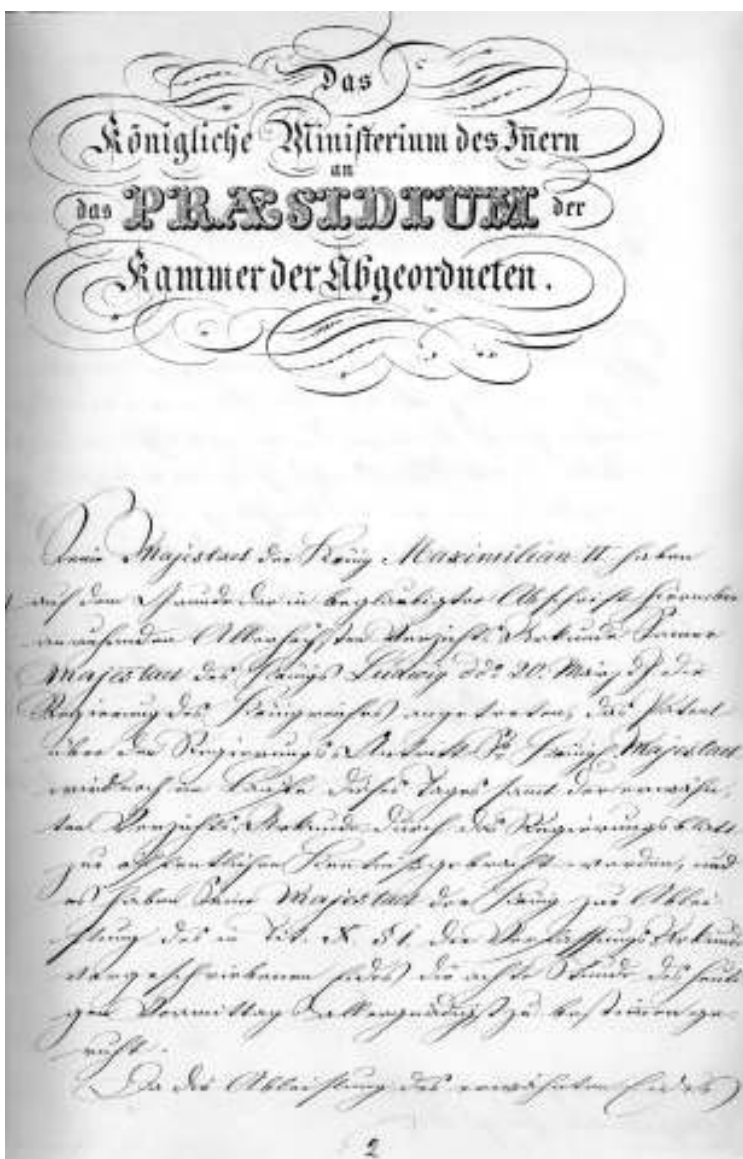 Das
Königliche Ministerium des Iñern
an
das PRÆSIDIUM der
Kammer der Abgeordneten.
Seine Majestaet der König Maximilian II. haben
auf dem Grunde der in beglaubigter Abschrift hierneben
anruhenden Allerhöchsten Verzichts-Urkunde Seiner
Majestaet des Königs Ludwig ddo 20. März d. J. die
Regierung des Königreiches angetreten, das Patent
über den Regierungs-Antritt Sr. Königl. Majestaet
wird noch im Laufe dieses Tages samt der erwähn-
ten Verzichts-Urkunde durch das Regierungsblatt
zur öffentlichen Kentniß gebracht werden, und
es haben Seine Majestaet der König zur Ablei-
stung des in Tit. X. §1. der Verfassungs-Urkunde
vorgeschriebenen Eides die achte Stunde des heuti-
gen Vormittags allergnädigst zu bestimen ge-
ruht.
Da die Ableistung des erwähnten Eides
2